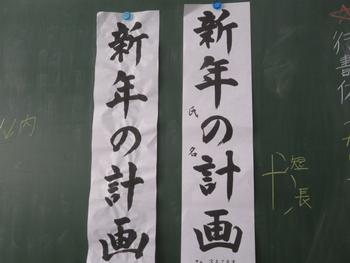 新年の計画
新年の計画
氏名
行書
短
長
内